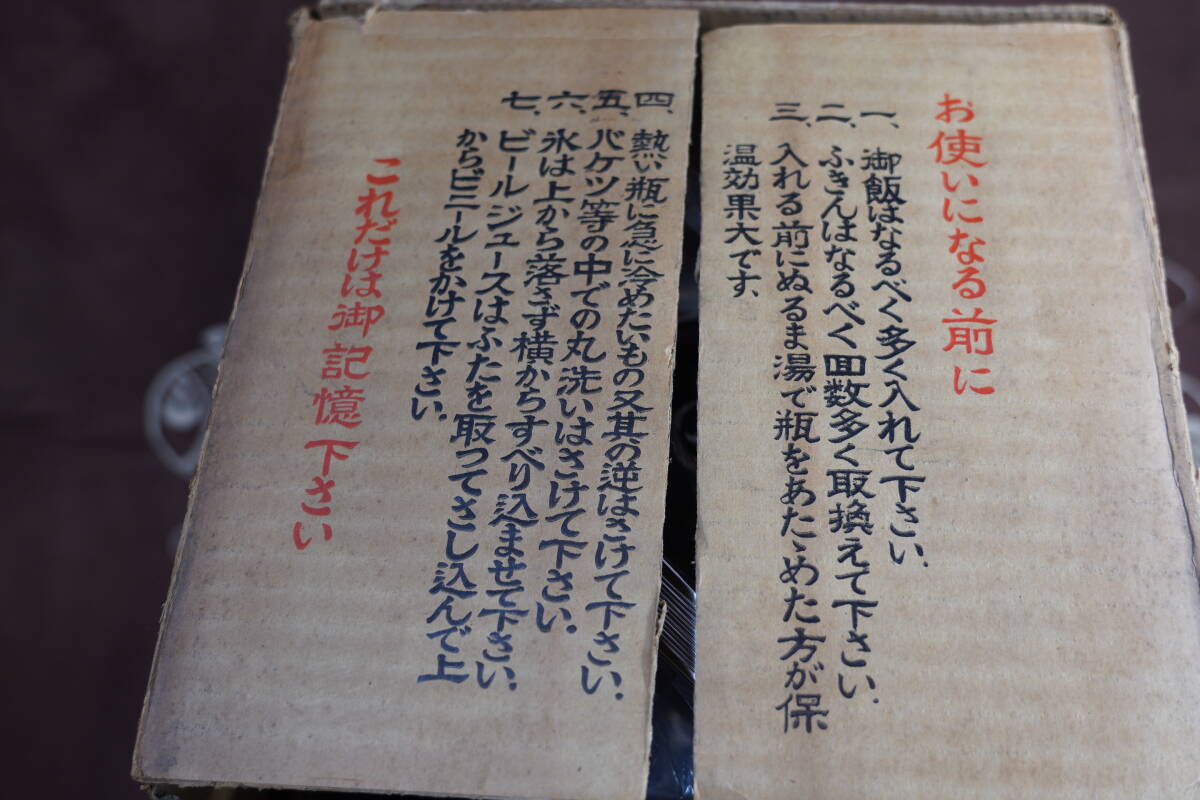 お使いになる前に
一、御飯はなるべく多く入れて下さい、
二、ふきんはなるべく回数多く取換えて下さい、
三、入れる前にぬるま湯で瓶をあたゝめた方が保
温効果大です、
四、熱い瓶に急に冷めたいもの又其の逆はさけて下さい、
五、バケツ等の中での丸洗いはさけて下さい。
六、氷は上から落さず横からすべり込ませて下さい、
七、ビールジュースはふたを取つてさし込んで上
からビニールをかけて下さい、
これだけは御記憶下さい